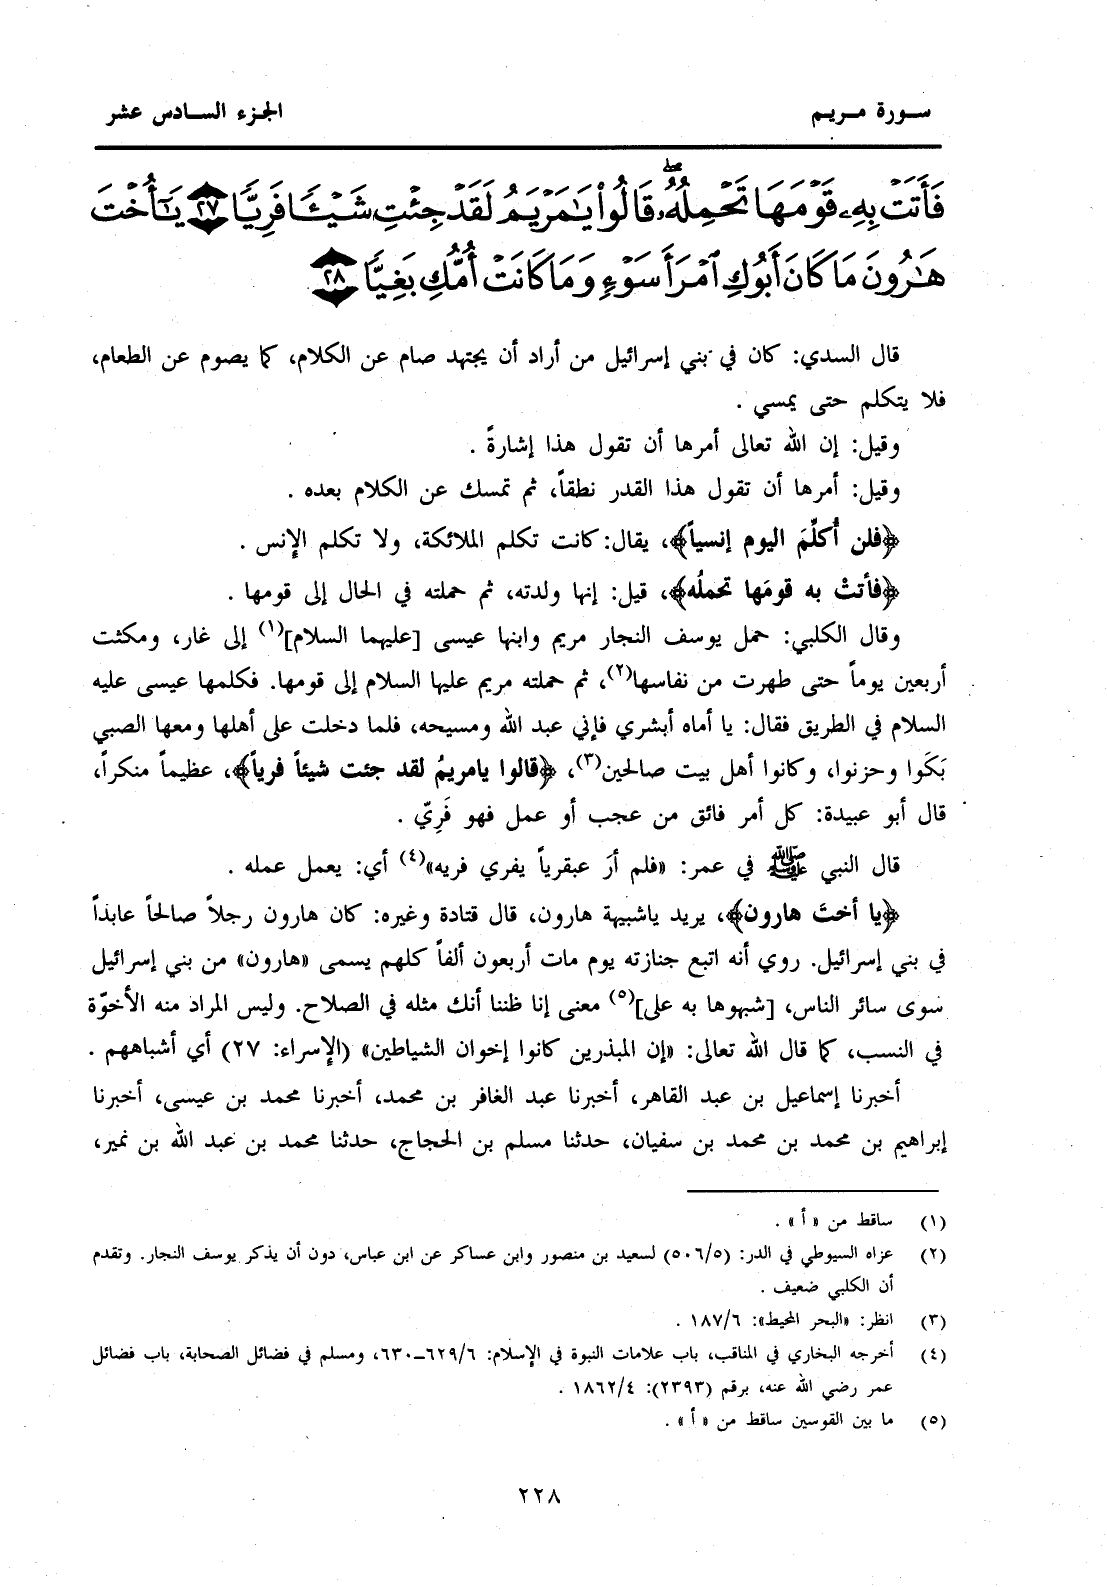 سورة مريم
الجزء السادس عشر
فَأَتَتْ بِهِۦ قَوْمَهَا تَحْمِلُهُۥۖ قَالُوا۟ يَٰمَرْيَمُ لَقَدْ جِئْتِ شَيْـًٔا فَرِيًّا ٢٧ يَٰٓأُخْتَ
هَٰرُونَ مَا كَانَ أَبُوكِ ٱمْرَأَ سَوْءٍ وَمَا كَانَتْ أُمُّكِ بَغِيًّا ٢٨
قال السدي: كان في بني إسرائيل من أراد أن يجتهد صام عن الكلام، كما يصوم عن الطعام،
فلا يتكلم حتى يمسي .
وقيل: إن الله تعالى أمرها أن تقول هذا إشارةً .
وقيل: أمرها أن تقول هذا القدر نطقاً، ثم تمسك عن الكلام بعده .
﴿فلن أُكلِّمَ اليوم إنسياً﴾، يقال: كانت تكلم الملائكة، ولا تكلم الإنس .
﴿فأتتْ به قومَها تحملُه﴾، قيل: إنها ولدته، ثم حملته في الحال إلى قومها .
وقال الكلبي: حمل يوسف النجار مريم وابنها عيسى [عليهما السلام](١) إلى غار، ومكثت
أربعين يوماً حتى طهرت من نفاسها(٢)، ثم حملته مريم عليها السلام إلى قومها. فكلمها عيسى عليه
السلام في الطريق فقال: يا أماه أبشري فإني عبد الله ومسيحه، فلما دخلت على أهلها ومعها الصبي
بَكَوا وحزنوا، وكانوا أهل بيت صالحين(٣)، ﴿قالوا يامريمُ لقد جئت شيئاً فرياً﴾، عظيماً منكراً،
قال أبو عبيدة: كل أمر فائق من عجب أو عمل فهو فَرِيّ .
قال النبي ﷺ في عمر: «فلم أرَ عبقرياً يفري فريه»(٤) أي: يعمل عمله .
﴿يا أختَ هارون﴾، يريد ياشبيهة هارون، قال قتادة وغيره: كان هارون رجلاً صالحاً عابداً
في بني إسرائيل. روي أنه اتبع جنازته يوم مات أربعون ألفاً كلهم يسمى «هارون» من بني إسرائيل
سوى سائر الناس، [شبهوها به على](٥) معنى إنا ظننا أنك مثله في الصلاح. وليس المراد منه الأخوّة
في النسب، كما قال الله تعالى: «إن المبذرين كانوا إخوان الشياطين» (الإسراء: ٢٧) أي أشباههم .
أخبرنا إسماعيل بن عبد القاهر، أخبرنا عبد الغافر بن محمد، أخبرنا محمد بن عيسى، أخبرنا
إبراهيم بن محمد بن محمد بن سفيان، حدثنا مسلم بن الحجاج، حدثنا محمد بن عبد الله بن نمير،
(١) ساقط من «أ» .
(٢) عزاه السيوطي في الدر: (٥٠٦/٥) لسعيد بن منصور وابن عساكر عن ابن عباس، دون أن يذكر يوسف النجار. وتقدم
أن الكلبي ضعيف .
(٣) انظر: «البحر المحيط»: ١٨٧/٦ .
(٤) أخرجه البخاري في المناقب، باب علامات النبوة في الإسلام: ٦٢٩/٦ــ٦٣٠، ومسلم في فضائل الصحابة، باب فضائل
عمر رضي الله عنه، برقم (٢٣٩٣): ١٨٦٢/٤ .
(٥) ما بين القوسين ساقط من «أ» .
٢٢٨